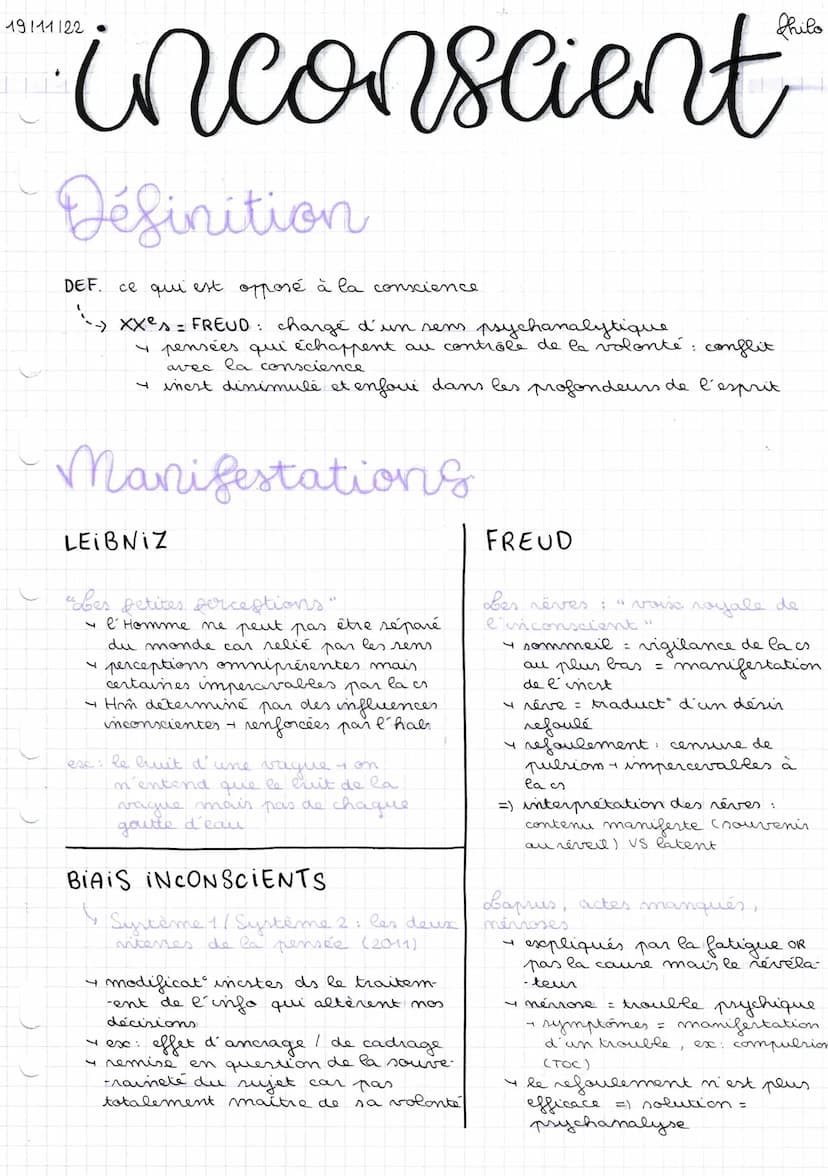 19/11/22
philo
inconscient
Définition
DEF. ce qui est opposé à la conscience
XXe s = FREUD : chargé d'un sens psychanalytique
→ pensées qui échappent au contrôle de la volonté : conflit
avec la conscience
→ incst dissimulé et enfoui dans les profondeurs de l'esprit
Manifestations
LEIBNIZ
"Les petites perceptions"
→ l'Homme ne peut pas être séparé
du monde car relié par les sens
→ perceptions omniprésentes mais
certaines impercevables par la cs
→ Hm déterminé par des influences
inconscientes → renforcées par l'hab.
ex : le bruit d'une vague → on
n'entend que le bruit de la
vague mais pas de chaque
goutte d'eau
BIAIS INCONSCIENTS
Système 1 / Système 2 : les deux
vitesses de la pensée (2011)
→ modificat° incstes ds le traitem-
-ent de l'info qui altèrent nos
décisions
→ ex : effet d'ancrage / de cadrage
→ remise en question de la souve-
-raineté du sujet car pas
totalement maître de sa volonté
FREUD
Les rêves : "voie royale de
l'inconscient"
→ sommeil = vigilance de la cs
au plus bas = manifestation
de l'incst
→ rêve = traduct° d'un désir
refoulé
→ refoulement : censure de
pulsion → impercevables à
la cs
=> interprétation des rêves :
contenu manifeste (souvenir
au réveil) VS latent
Lapsus, actes manqués,
névroses
→ expliqués par la fatigue OR
pas la cause mais le révéla-
-teur
→ névrose = trouble psychique
→ symptômes = manifestation
d'un trouble, ex : compulsion
(TOC)
→ le refoulement n'est plus
efficace => solution =
psychanalyse